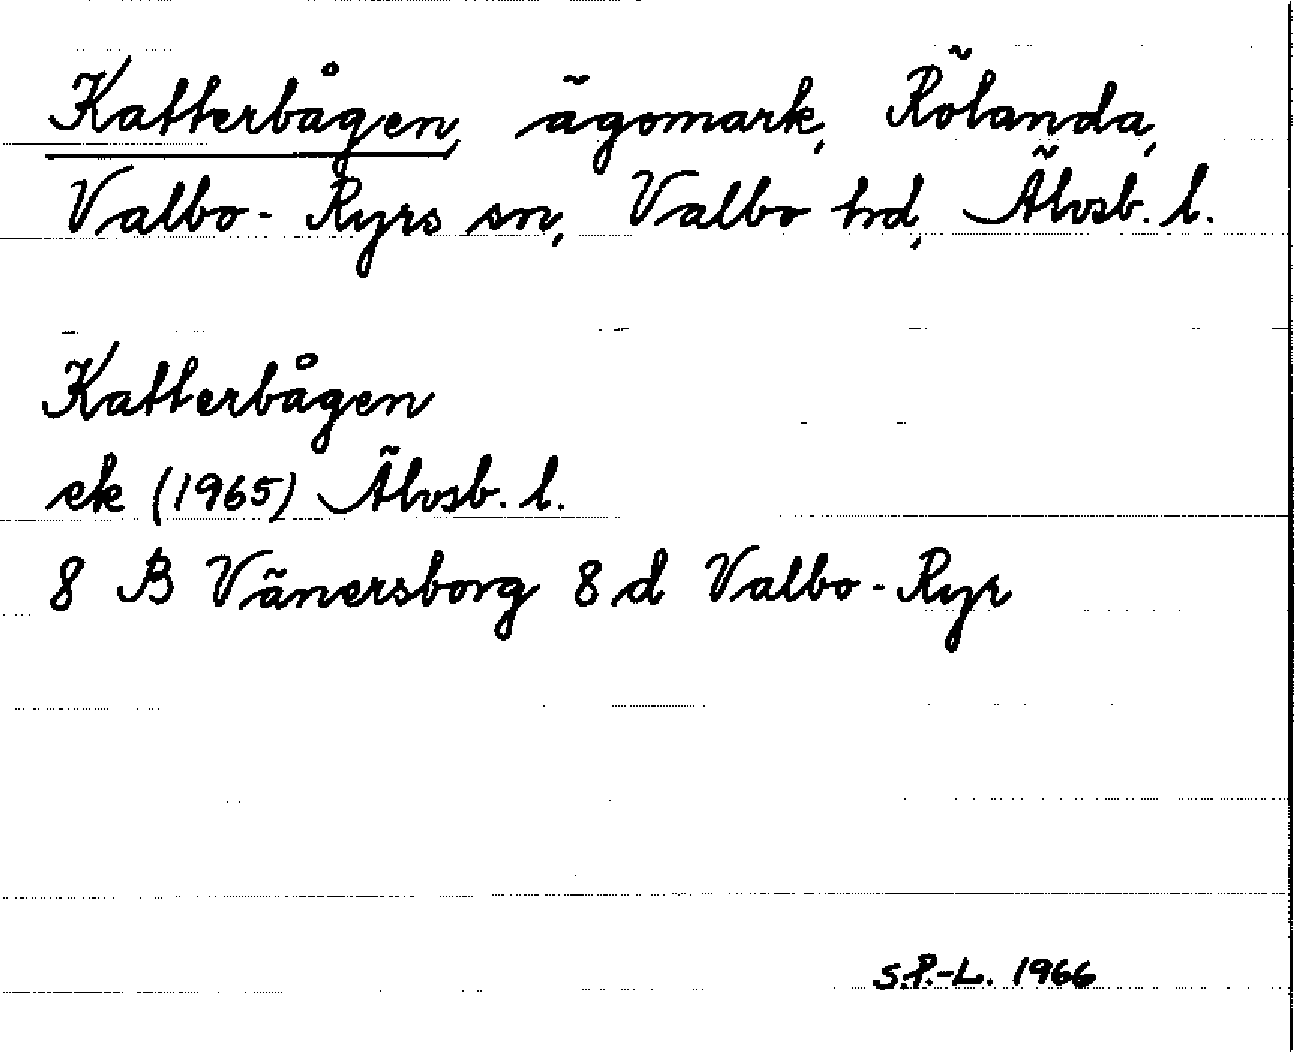 Katterbågen, ägomark, Rölanda,
Valbo-Ryrs sn, Valbo hd, Älvsb. l.
Katterbågen
ek (1965) Älvsb. l.
8 B Vänersborg 8 d Valbo-Ryr
S.P.-L. 1966